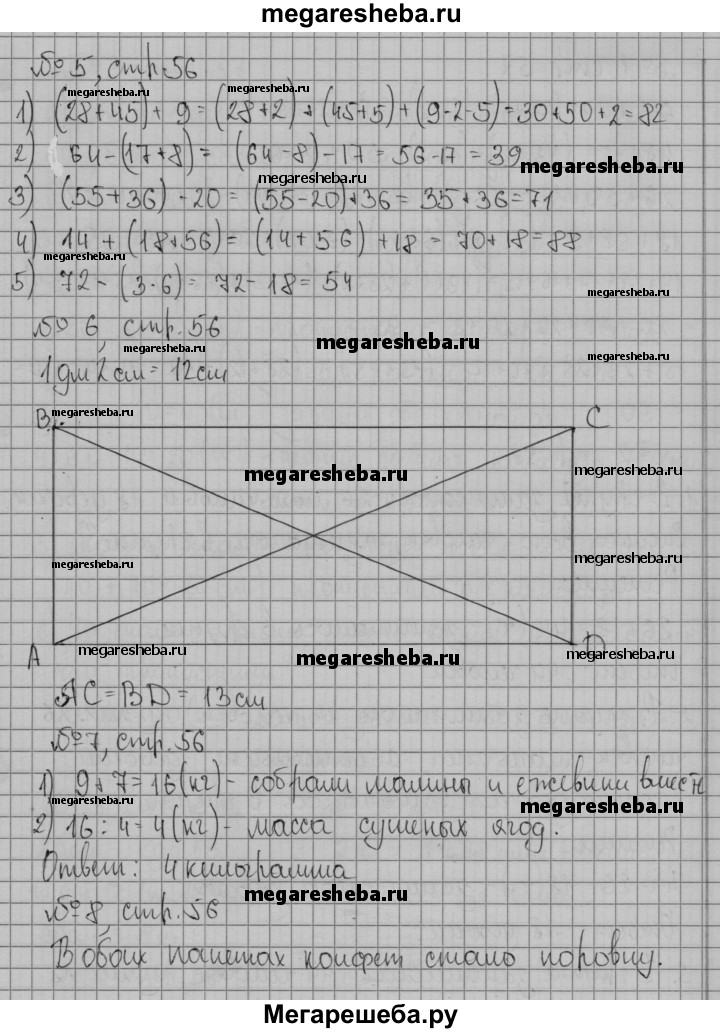 megaresheba.ru
№ 5, стр. 56
megaresheba.ru
megaresheba.ru
1) (28+45) + 9 = (28+2) + (45+5) + (9-2-5) = 30+50+2 = 82
megaresheba.ru
2) 64 - (17+8) = (64-8) - 17 = 56-17 = 39
megaresheba.ru
megaresheba.ru
3) (55+36) - 20 = (55-20)+36 = 35+36=71
4) 14 + (18+56) = (14+56) + 18 = 70+18=88
megaresheba.ru
5) 72 - (3·6) = 72-18 = 54
megaresheba.ru
№ 6, стр. 56
megaresheba.ru
megaresheba.ru
megaresheba.ru
1 дм 2 см = 12 см
B megaresheba.ru C
megaresheba.ru
megaresheba.ru
megaresheba.ru
megaresheba.ru
A megaresheba.ru megaresheba.ru megaresheba.ru D
AC = BD = 13 см
№ 7, стр. 56
1) 9+7=16 (кг) - собрали малины и ежевики вместе
megaresheba.ru
megaresheba.ru
2) 16 : 4 = 4 (кг) - масса сушеных ягод.
Ответ: 4 килограмма
megaresheba.ru
№ 8, стр. 56
В обоих пакетах конфет стало поровну.
Мегарешеба.ру